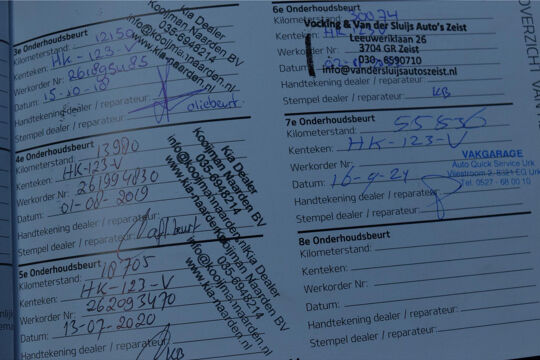 3e Onderhoudsbeurt
Kilometerstand: 12150
Kenteken: HK-123-V
Werkorder Nr: 261895485
Datum: 15-10-18
Handtekening dealer / reparateur:
Stempel dealer / reparateur: oliebeurt
Kia Dealer
Kooijman Naarden BV
035-6948214
info@kooijmannaarden.nl
www.kia-naarden.nl
4e Onderhoudsbeurt
Kilometerstand: 13980
Kenteken: HK-123-V
Werkorder Nr: 261994830
Datum: 01-08-2019
Handtekening dealer / reparateur:
Stempel dealer / reparateur:
Kia Dealer
Kooijman Naarden BV
035-6948214
info@kooijmannaarden.nl
www.kia-naarden.nl
5e Onderhoudsbeurt
Kilometerstand: 18705
Kenteken: HK-123-V
Werkorder Nr: 262093470
Datum: 13-07-2020
Handtekening dealer / reparateur:
KB
Kia Dealer
Kooijman Naarden BV
035-6948214
info@kooijmannaarden.nl
www.kia-naarden.nl
6e Onderhoudsbeurt
Kilometerstand:
Kenteken: HK-123-V
Werkorder Nr:
Datum:
Handtekening dealer / reparateur:
Stempel dealer / reparateur: KB
Vocking & Van der Sluijs Auto's Zeist
Leeuweriklaan 26
3704 GR Zeist
030-6590710
info@vandersluijsautozeist.nl
7e Onderhoudsbeurt
Kilometerstand:
Kenteken: HK-123-V
Werkorder Nr:
Datum: 16-9-24
Handtekening dealer / reparateur:
Stempel dealer / reparateur:
VAKGARAGE
Auto Quick Service Urk
Vliestroom 2, 8321 EG Urk
Tel. 0527-68 00 10
8e Onderhoudsbeurt
Kilometerstand:
Kenteken:
Werkorder Nr:
Datum:
Handtekening dealer / reparateur:
Stempel dealer / reparateur:
OVERZICHT VAN